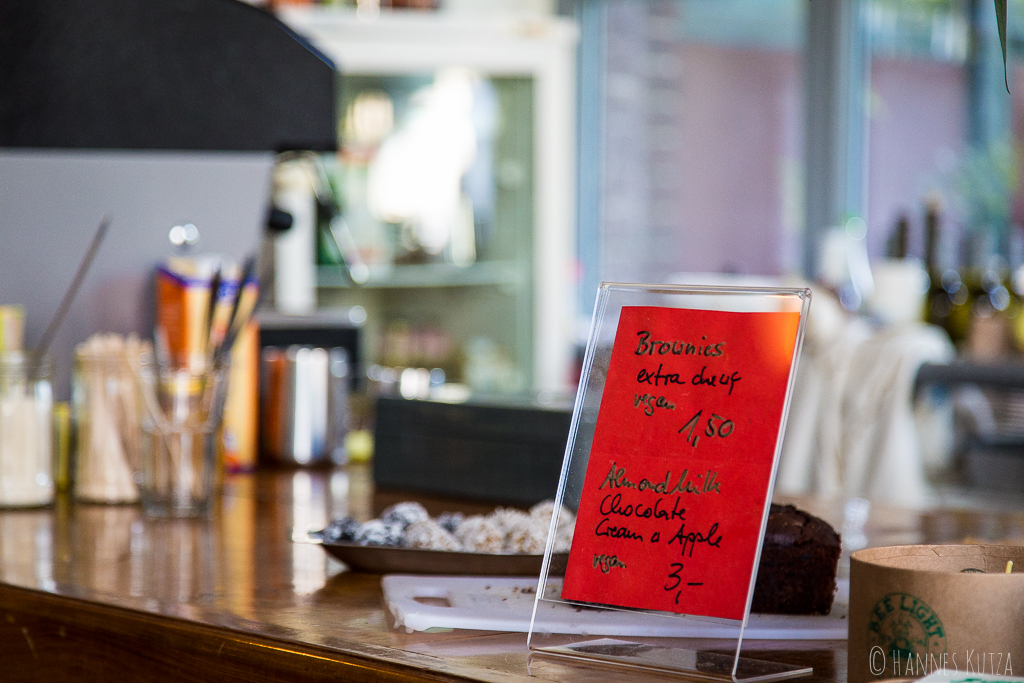 Brownies
extra chewy
vegan
1,50
Almondmilk
Chocolate
Cream & Apple
vegan
3,-
FREE LIGHT
© HANNES KUTZA